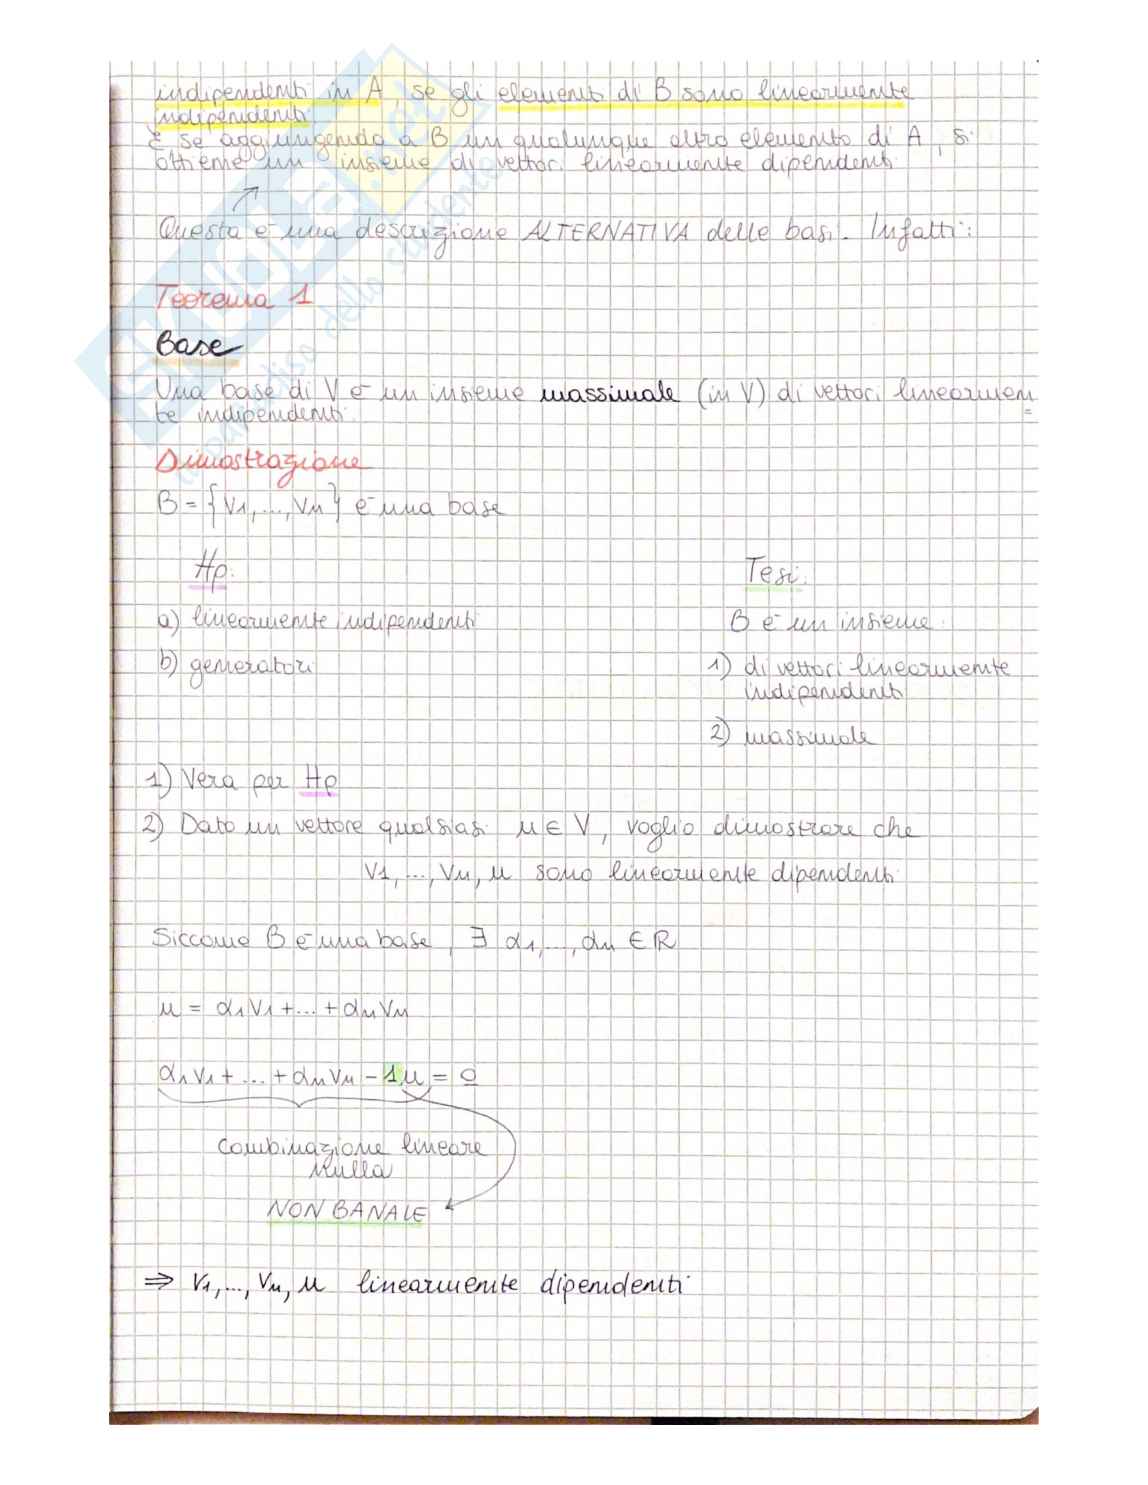 indipendenti in A, se gli elementi di B sono linearmente
indipendenti
E se aggiungendo a B un qualunque altro elemento di A, si
ottiene un insieme di vettori linearmente dipendenti.
Questa è una descrizione ALTERNATIVA delle basi. Infatti:
Teorema 1
Base
Una base di V è un insieme massimale (in V) di vettori linearmen
te indipendenti.
Dimostrazione
B = {v1, ..., vn} è una base
Hp:
Tesi:
a) linearmente indipendenti
B è un insieme:
b) generatori
1) di vettori linearmente
indipendenti
2) massimale
1) Vera per Hp
2) Dato un vettore qualsiasi u ∈ V, voglio dimostrare che
v1, ..., vn, u sono linearmente dipendenti.
Siccome B è una base, ∃ α1, ..., αn ∈ R
u = α1v1 + ... + αnvn
α1v1 + ... + αnvn - 1u = 0
Combinazione lineare
nulla
NON BANALE
⇒ v1, ..., vn, u linearmente dipendenti
SKUOLA.net
il paradiso dello studente